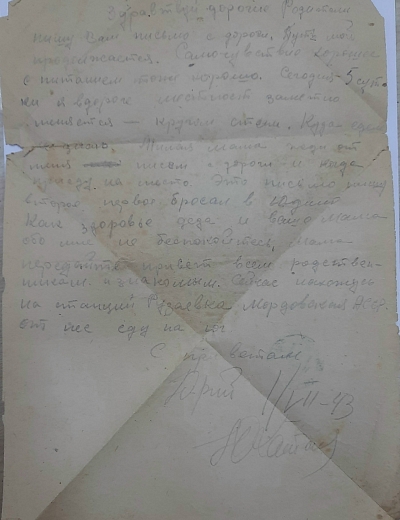 Здравствуй дорогие Родители
пишу Вам письмо с дороги. Путь мой
продолжается. Самочувствие хорошее
с питанием тоже хорошо. Сегодня 5 сут-
ки в дороге местность заметно
меняется — кругом степи. Куда еду
Милая Мама жди от
меня писем с дороги и когда
приеду на место. Это письмо пишу
второе первое бросал в
Как здоровье деда и Ваше Мама
обо мне не беспокойтесь, Мама
передайте привет всем родствен-
никам и знакомым. Сейчас нахожусь
на станции Рузаевка Мордовская АССР.
от же еду на юг.
С приветом
Юрий 1/VII-43